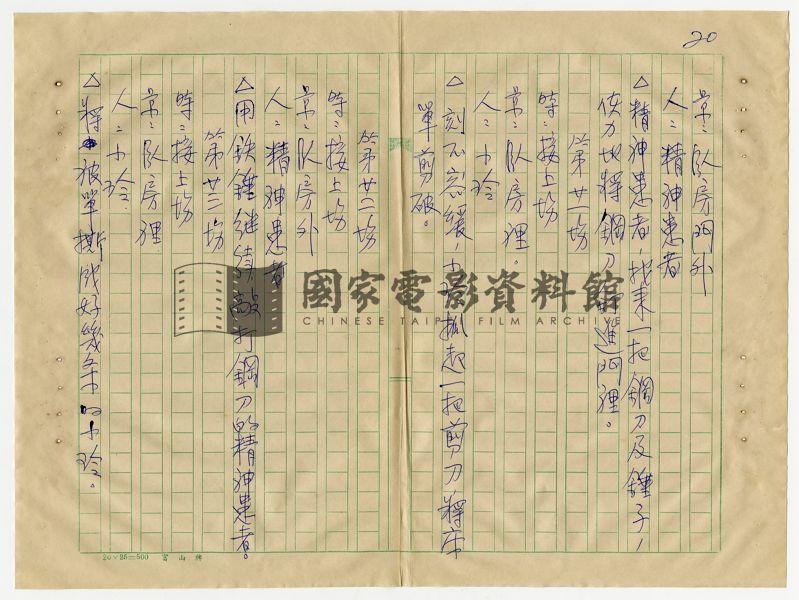 20
景：臥房門外
人：精神患者
△精神患者，找來一把鋼刀及錘子，
使力地將鋼刀進門裡。
第廿一場
時：接上場
景：臥房裡。
人：小玲
△刻不容緩，小玲抓起一把剪刀將床
單剪破。
第廿二場
時：接上場
景：臥房外
人：精神患者
△用鉄錘継續敲打鋼刀的精神患者。
第廿三場
時：接上場
景：臥房裡
人：小玲
△將被單撕成好幾条的小玲。
國家電影資料館
CHINESE TAIPEI FILM ARCHIVE
20×25=500 富山牌